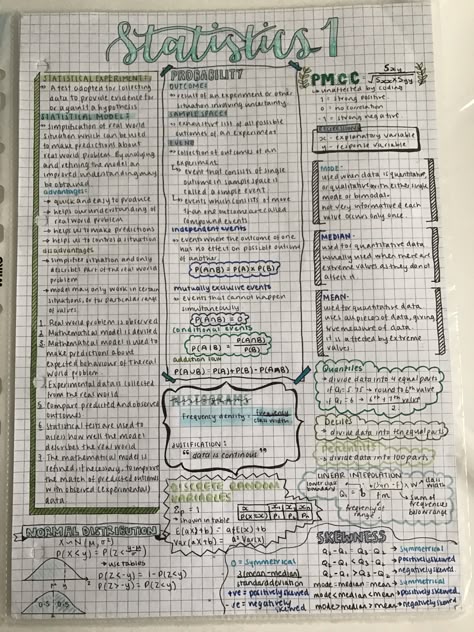 Statistics 1
STATISTICAL EXPERIMENT:
→ A test adopted for collecting
data to provide evidence for
or against a hypothesis
STATISTICAL MODEL:
→ simplification of real world
situation which can be used
to make predictions about
real world problem. By analysing
and refining the model an
improved understanding may
be obtained
advantages:
→ quick and easy to produce
→ helps our understanding of
real world problem
→ helps us to make predictions
→ helps us to control a situation
disadvantages
→ simplifies situation and only
describes part of the real world
problem
→ model may only work in certain
situations, or for particular range
of values
1 Real world problem is observed
2 Mathematical model is devised
3 Mathematical model is used to
make predictions about
expected behaviour of the real
world problem
4 Experimental data is collected
from the real world
5 Compare predicted and observed
outcomes
6 Statistical tests are used to
assess how well the model
describes the real world
7 The mathematical model is
refined if necessary, to improve
the match of predicted outcomes
with observed (experimental)
data
PROBABILITY
OUTCOME:
→ result of an experiment or other
situation involving uncertainty
SAMPLE SPACE:
→ exhaustive list of all possible
outcomes of an experiment
EVENT
→ collection of outcomes of an
experiment
↳ event that consists of single
outcome in sample space is
called a simple event
↳ events which consists of more
than one outcome are called
compound events
independent events
→ events where the outcome of one
has no effect on possible outcome
of another
P(A∩B) = P(A) x P(B)
mutually exclusive events
→ events that cannot happen
simultaneously
P(A∩B) = 0
conditional events
P(A|B) = P(A∩B) / P(B)
addition law
P(A∪B) = P(A) + P(B) - P(A∩B)
HISTOGRAMS
Frequency density = frequency / class width
JUSTIFICATION:
"data is continuous"
DISCRETE RANDOM
VARIABLES
Σp = 1
→ shown in table
E(aX+b) = aE(X)+b
Var(aX+b) = a²Var(X)
P.M.C.C Sxy / √Sxx x Syy
→ unaffected by coding
1 = strong positive
0 = no correlation
-1 = strong negative
x - explanatory variable
y - response variable
MODE:
used when data is quantitative,
or qualitative with either single
mode or bimodal.
not very informative if each
value occurs only once.
MEDIAN:
used for quantitative data
usually used when there are
extreme values as they do not
affect it.
MEAN:
used for quantitative data
uses all pieces of data, giving
true measure of data
it is affected by extreme
values
Quantiles
→ divide data into 4 equal parts
Deciles
→ divide data into ten equal parts
Percentiles
→ divide data into 100 parts
LINEAR INTERPOLATION
lower class boundary
class width
frequency of range
sum of frequencies below range
NORMAL DISTRIBUTION
P(X<y) = P(Z<
→ use tables
P(Z<-y) = 1 - P(Z<y)
P(Z>-y) = P(Z<y)
0.5 0.5
0 = symmetrical
3(mean-median) / standard deviation
+ve = positively skewed
-ve = negatively skewed
SKEWNESS
Q₂-Q₁ = Q₃-Q₂ → symmetrical
Q₂-Q₁ < Q₃-Q₂ → positively skewed
Q₂-Q₁ > Q₃-Q₂ → negatively skewed
mode = median = mean → symmetrical
mode < median < mean → positively skewed
mode > median > mean → negatively skewed